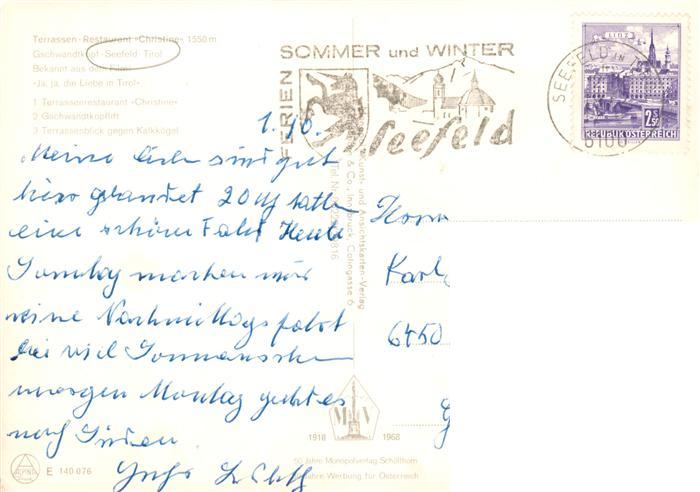 Terrassen-Restaurant »Christine« 1550 m
Gschwandtkopf-Seefeld-Tirol
Bekannt aus dem Film
»Ja, ja, die Liebe in Tirol«
1 Terrassenrestaurant »Christine«
2 Gschwandtkopflift
3 Terrassenblick gegen Kalkkögel
FERIEN
SOMMER und WINTER
Seefeld
SEEFELD IN
6100
LINZ
2.50
REPUBLIK ÖSTERREICH
1.10.
Meine Lieben sind gut
hier gelandet 20 hatten
eine schöne Fahrt Heute
Sonntag machen wir
eine Nachmittagsfahrt
bei viel Sonnenschein
morgen Montag geht es
nach Süden
Kunst- und Ansichtskarten-Verlag
& Co., Innsbruck, Colingasse 6
Karl
6450
M V
1918 1968
50 Jahre Monopolverlag Schöllhorn
Jahre Werbung für Österreich
E 140 076